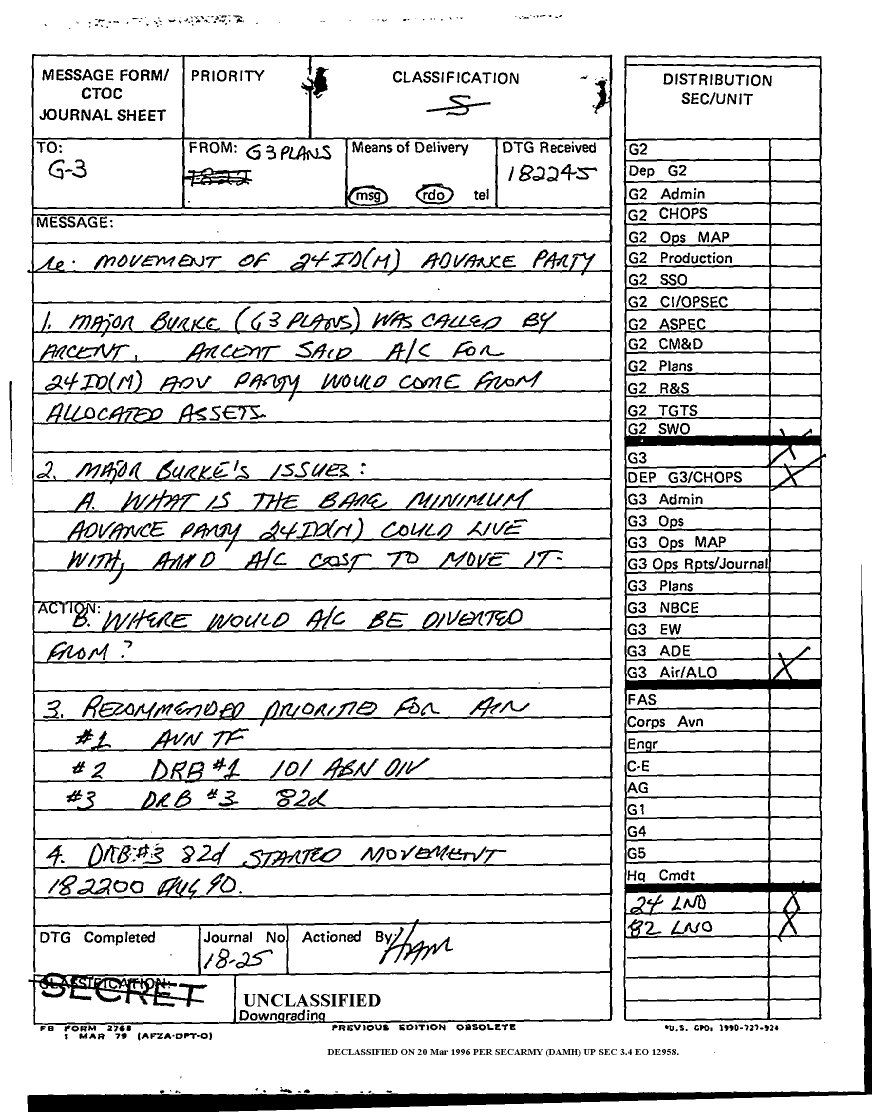 MESSAGE FORM/
CTOC
JOURNAL SHEET
PRIORITY
CLASSIFICATION
S
TO:
G-3
FROM: G3 PLANS
1822
Means of Delivery
msg rdo tel
DTG Received
182245
MESSAGE:
re: MOVEMENT OF 24 ID(M) ADVANCE PARTY
1. MAJOR BURKE (G3 PLANS) WAS CALLED BY
ARCENT. ARCENT SAID A/C FOR
24 ID(M) ADV PARTY WOULD COME FROM
ALLOCATED ASSETS.
2. MAJOR BURKE'S ISSUES:
A. WHAT IS THE BARE MINIMUM
ADVANCE PARTY 24 ID(M) COULD LIVE
WITH, AND A/C COST TO MOVE IT.
ACTION:
B. WHERE WOULD A/C BE DIVERTED
FROM?
3. RECOMMENDED PRIORITIES FOR AIR
#1 AVN TF
#2 DRB #1 101 ABN DIV
#3 DRB #3 82d
4. DRB #3 82d STARTED MOVEMENT
182200 AUG 90.
DTG Completed
Journal No
18-25
Actioned By:
HAM
CLASSIFICATION:
SECRET
UNCLASSIFIED
Downgrading
FB FORM 2768
1 MAR 79 (AFZA-DPT-O)
PREVIOUS EDITION OBSOLETE
DISTRIBUTION
SEC/UNIT
G2
Dep G2
G2 Admin
G2 CHOPS
G2 Ops MAP
G2 Production
G2 SSO
G2 CI/OPSEC
G2 ASPEC
G2 CM&D
G2 Plans
G2 R&S
G2 TGTS
G2 SWO
G3 X
DEP G3/CHOPS X
G3 Admin
G3 Ops
G3 Ops MAP
G3 Ops Rpts/Journal
G3 Plans
G3 NBCE
G3 EW
G3 ADE
G3 Air/ALO X
FAS
Corps Avn
Engr
C-E
AG
G1
G4
G5
Hq Cmdt
24 LNO X
82 LNO X
*U.S. GPO: 1990-727-924
DECLASSIFIED ON 20 Mar 1996 PER SECARMY (DAMH) UP SEC 3.4 EO 12958.